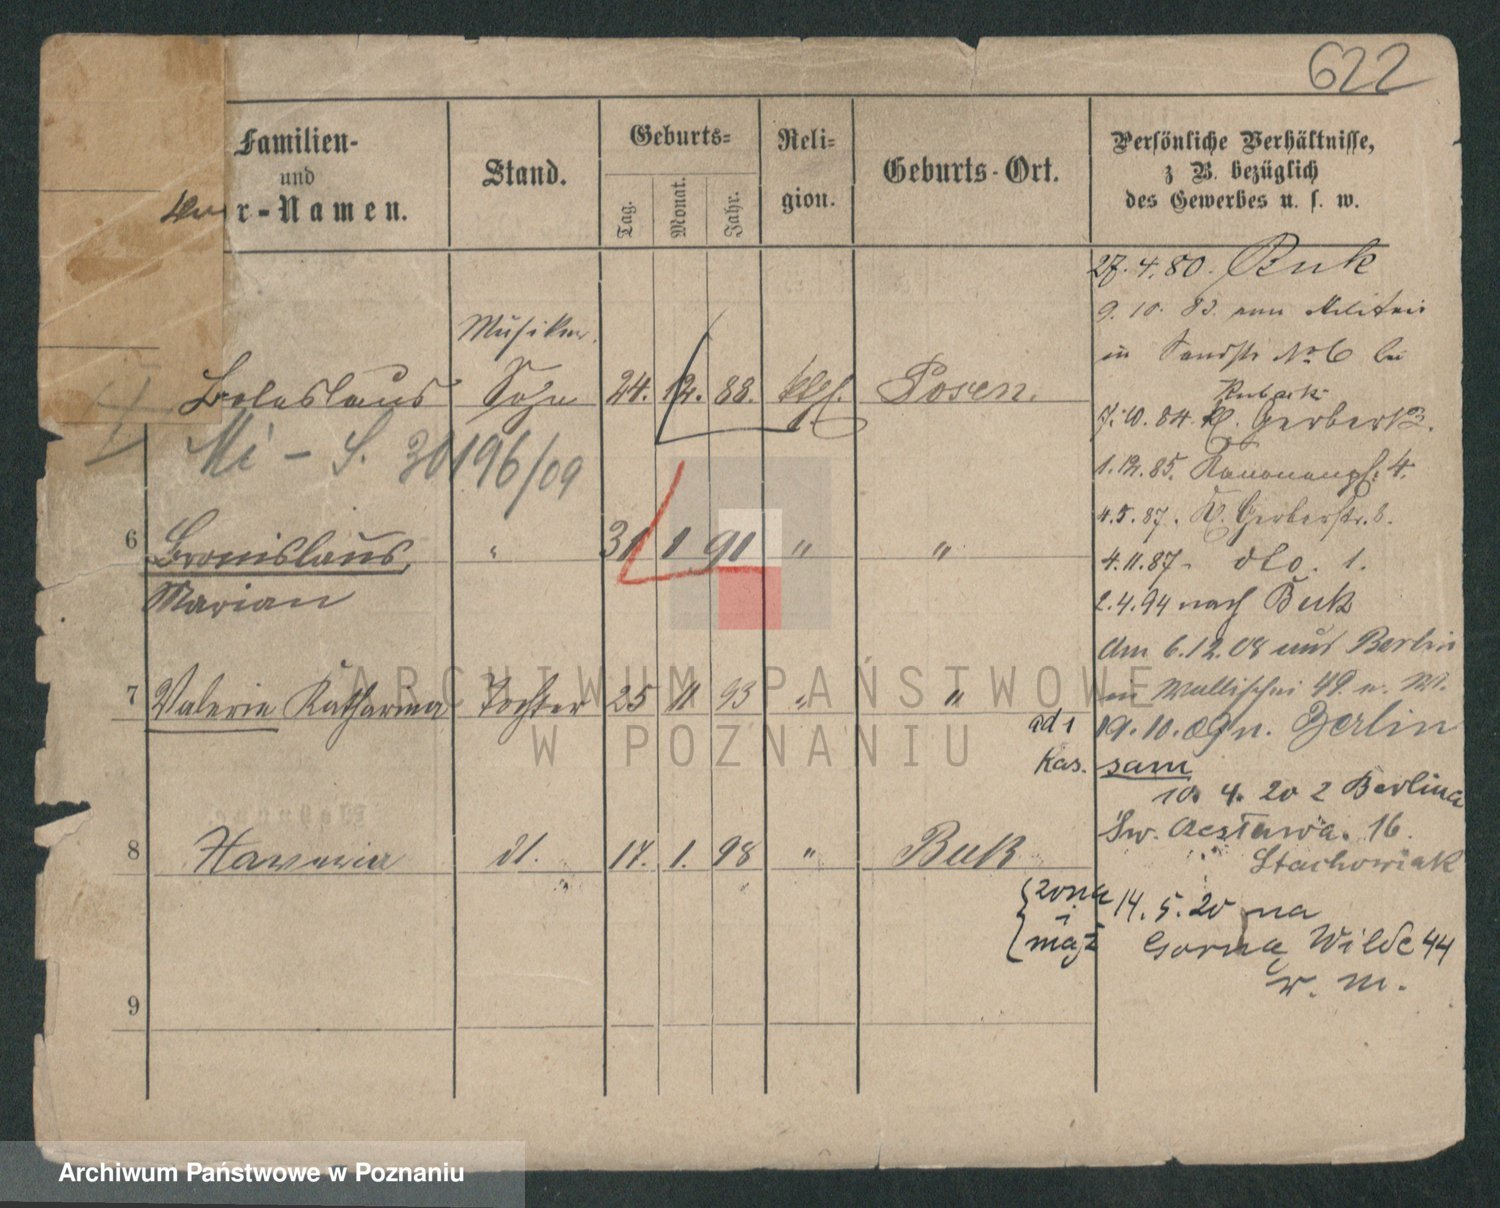 622
Familien-
und
r-Namen.
Stand.
Geburts-
Tag.
Monat.
Jahr.
Reli-
gion.
Geburts-Ort.
Persönliche Verhältnisse,
z B. bezüglich
des Gewerbes u. s. w.
27. 4. 80. Buk
9. 10. 83. vom Militair
in Sandstr No 6 bei
Musiker.
Boleslaus Sohn 24. 12. 88. kth. Posen.
7. 10. 84. Kl. Gerberst 3.
Mi - S. 30196/09
1. 12. 85. Kanonenpl. 4.
4. 5. 87. Kl. Gerberstr. 8.
6 Bronislaus " 31 1 91 " "
4. 11. 87 - dto. 1.
Marian
2. 4. 94 nach Buk
am 6. 12. 08 aus Berlin
7 Valeria Katharina Tochter 25 11 93 " "
Wallischei 49 b. W.
ad 1 19. 10. 09 n. Berlin
Kas. sam
10. 4. 20 z Berlina
Św. 16.
Stachowiak
8 dt. 17. 1. 98 " Buk
żona 14. 5. 20 na
i
mąż Gorna Wilde 44
w. m.
9
ARCHIWUM PAŃSTWOWE
W POZNANIU
Archiwum Państwowe w Poznaniu